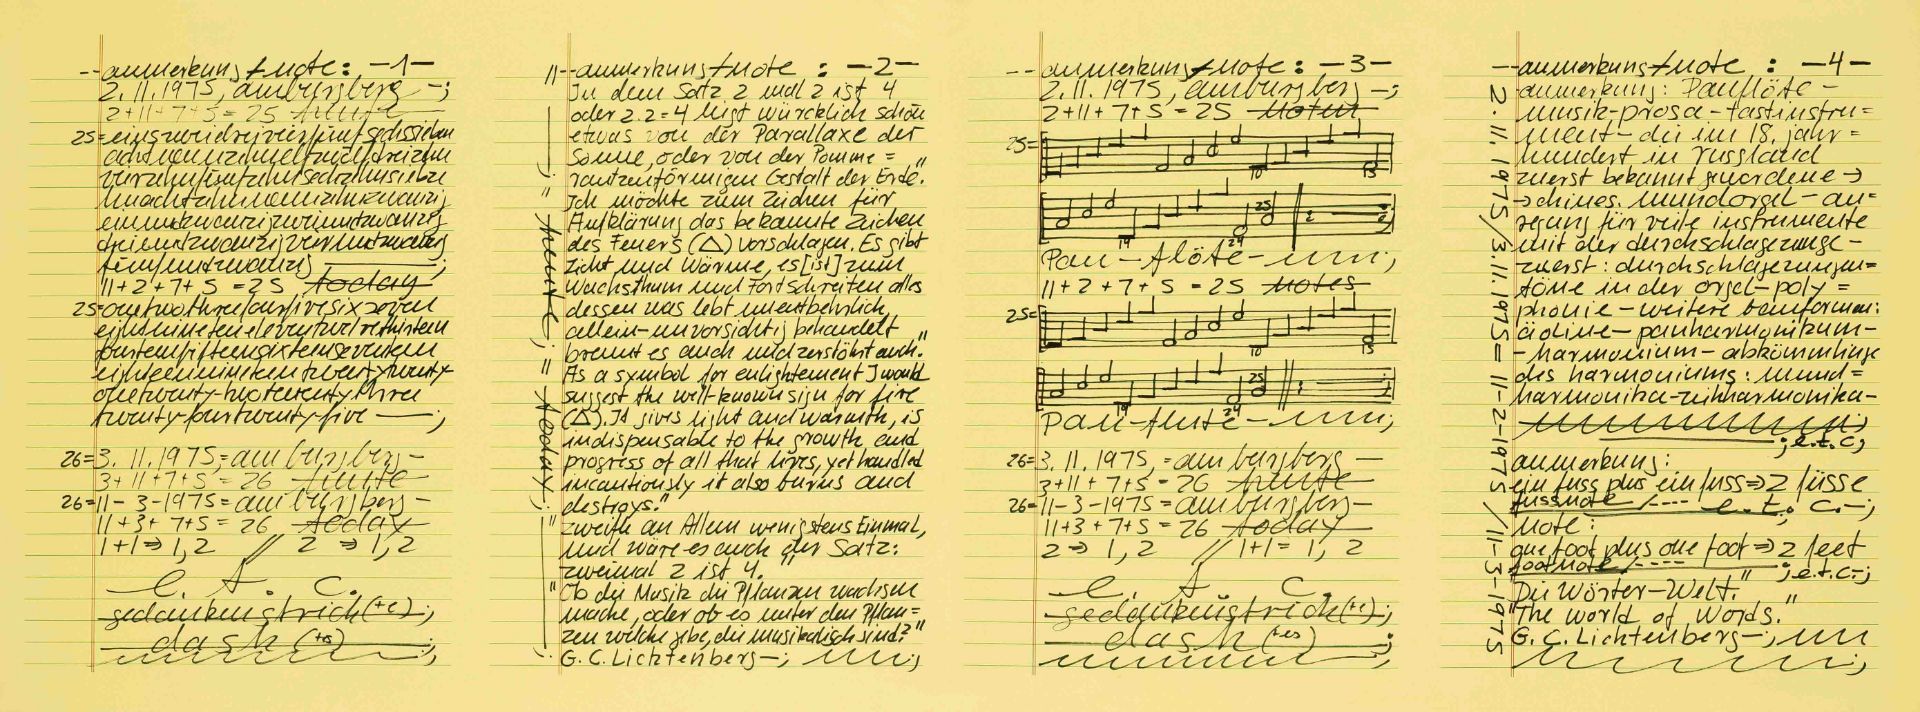 --anmerkung+note: -1-
2. 11. 1975, am burgberg -;
2+11+7+5 = 25 heute
25=einszweidreivierfünfsechssieben
achtneunzehnelfzwölfdreizehn
vierzehnfünfzehnsechzehnsiebze
hnachtzehnneunzehnzwanzig
einundzwanzigzweiundzwanzig
dreiundzwanzigvierundzwanzig
fünfundzwanzig ;
11+2+7+5 = 25 today
25=onetwothreefourfivesixseven
eightnineteneleventwelvethirteen
fourteenfifteensixteenseventeen
eighteennineteentwentytwenty
onetwenty-twotwenty-three
twenty-fourtwenty-five ;
26=3. 11. 1975,=am burgberg-
3+11+7+5= 26 heute
26=11-3-1975=am burgberg-
11+3+ 7+5= 26 today
1+1⇒ 1, 2 // 2 ⇒ 1, 2
e. t. c.
gedankenstrich(+e);
dash (+es) ;
11--anmerkung+note : -2-
In dem Satz 2 und 2 ist 4
oder 2.2=4 liegt würcklich schon
etwas von der Parallaxe der
Sonne, oder von der Pomme=
rantzenförmigen Gestalt der Erde."
Ich möchte zum Zeichen für
Aufklärung das bekannte Zeichen
des Feuers (△) vorschlagen. Es gibt
Licht und Wärme, es [ist] zum
Wachsthum und Fortschreiten alles
dessen was lebt unentbehrlich
allein-unvorsichtig behandelt
brennt es auch und zerstöhrt auch."
As a symbol for enlightement I would
suggest the well-known sign for fire
(△). It gives light and warmth, is
indispensable to the growth and
progress of all that lives, yet handled
incautiously it also burns and
destroys."
"zweifle an Allem wenigstens Einmal,
und wäre es auch der Satz:
zweimal 2 ist 4."
"Ob die Musik die Pflanzen wachsen
mache, oder ob es unter den Pflan=
zen welche gebe, die musikalisch sind?"
G. C. Lichtenberg-;
; = heute ; = today ;
--anmerkung+note: -3-
2. 11. 1975, am burgberg -;
2+11+7+5 = 25 Noten
25=
10 13
19 24 25
Pan-flöte- ;
11+2+7+5 = 25 Notes
25=
10 13
19 24 25
Pan-flute- ;
26=3. 11. 1975,=am burgberg-
3+11+7+5 = 26 heute
26=11-3-1975=am burgberg-
11+3+7+5 = 26 today
2 ⇒ 1, 2 // 1+1= 1, 2
e. t. c.
gedankenstrich(+e);
dash (+es) ;
--anmerkung+note : -4-
anmerkung: Panflöte-
musik-prosa-tastinstru=
ment- die im 18. jahr=
hundert in russland
zuerst bekannt gewordene→
→chines. mundorgel- an=
regung für viele instrumente
mit der durchschlagezunge-
zuerst: durchschlagezungen=
töne in der orgel-poly=
phonie - weitere bauformen:
äoline- panharmonikum-
-harmonium- abkömmlinge
des harmoniums: mund=
harmonika-ziehharmonika-
;e.t.c;
anmerkung:
ein fuss plus ein fuss⇒2 füsse
fussnote /---- e. t. c.-;
note:
one foot plus one foot⇒2 feet
footnote /---- ;e.t.c-;
Die Wörter-Welt."
"The world of Words."
G. C. Lichtenberg-;
;
2. 11. 1975/3. 11. 1975 = 11-2-1975/11-3-1975